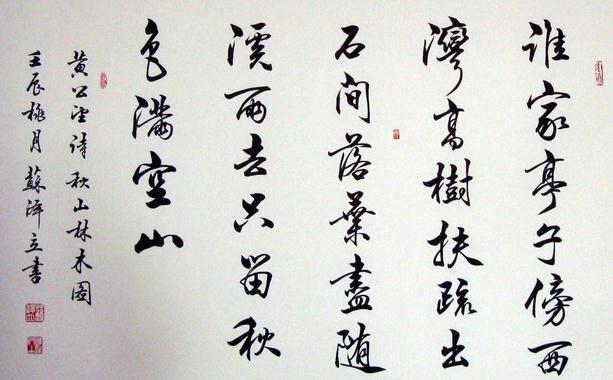 誰家亭子傍西
灣高樹扶疏出
石間落葉盡随
溪雨去只留秋
色滿空山
黄公望詩秋山林木图
壬辰桃月蘇澤立書